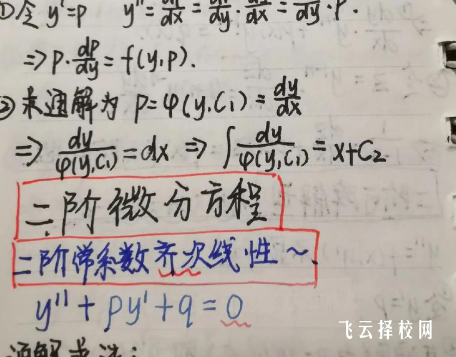 ①令 y'=p y''=dp/dx=dp/dy·dy/dx=dp/dy·p.
⇒p·dp/dy=f(y,p).
②求通解为 p=φ(y,C₁)=dy/dx
⇒dy/φ(y,C₁)=dx ⇒∫dy/φ(y,C₁)=x+C₂
二阶微分方程
二阶常系数齐次线性~.
y''+py'+q=0
飞云择校网
通解求法: